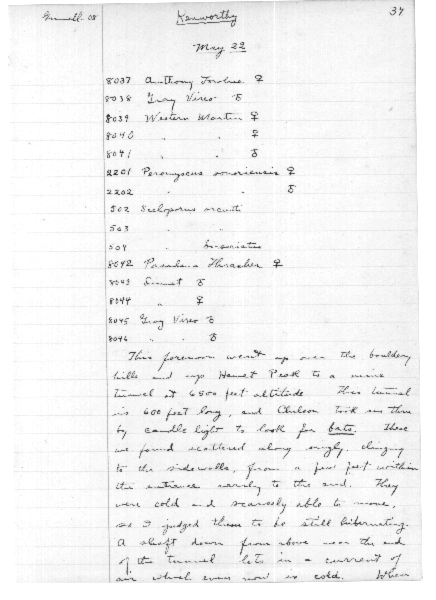 Grinnell '08
Kenworthy
37
May 22
8037 Anthony Towhee ♀
8038 Gray Vireo ♂
8039 Western Martin ♀
8040 " " ♀
8041 " " ♂
2201 Peromyscus sonoriensis ♀
2202 " " ♂
502 Sceloporus orcutti
503 " "
504 " bi-seriatus
8042 Pasadena Thrasher ♀
8043 " ♂
8044 " ♀
8045 Gray Vireo ♂
8046 " " ♂
This forenoon went up over the bouldery
hills and up Hemet Peak to a mine
tunnel at 6500 feet altitude This tunnel
is 600 feet long, and took us thru
by candle light to look for bats. These
we found scattered along singly, clinging
to the sidewalls, from a few feet within
the entrance nearly to the end. They
were cold and scarcely able to move,
so I judged them to be still hibernating.
A shaft down from above near the end
of the tunnel lets in a current of
air which even now is cold. When